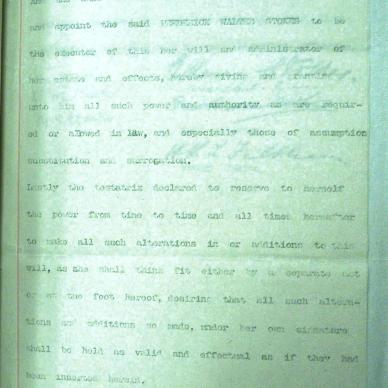 and appoint the said FREDERICK WALTER STOKES to be
the executor of this her will and administrator of
her estate and effects, hereby giving and
unto him all such power and authority as are requir-
ed or allowed in law, and especially those of assumption
substitution and surrogation.
Lastly the testatrix declared to reserve to herself
the power from time to time and all times hereafter
to make all such alterations in or additions to this
will, as she shall think fit either by a separate act
or at the foot hereof, desiring that all such altera-
tions and additions so made, under her own signature
shall be held as valid and effectual as if they had
been inserted herein.